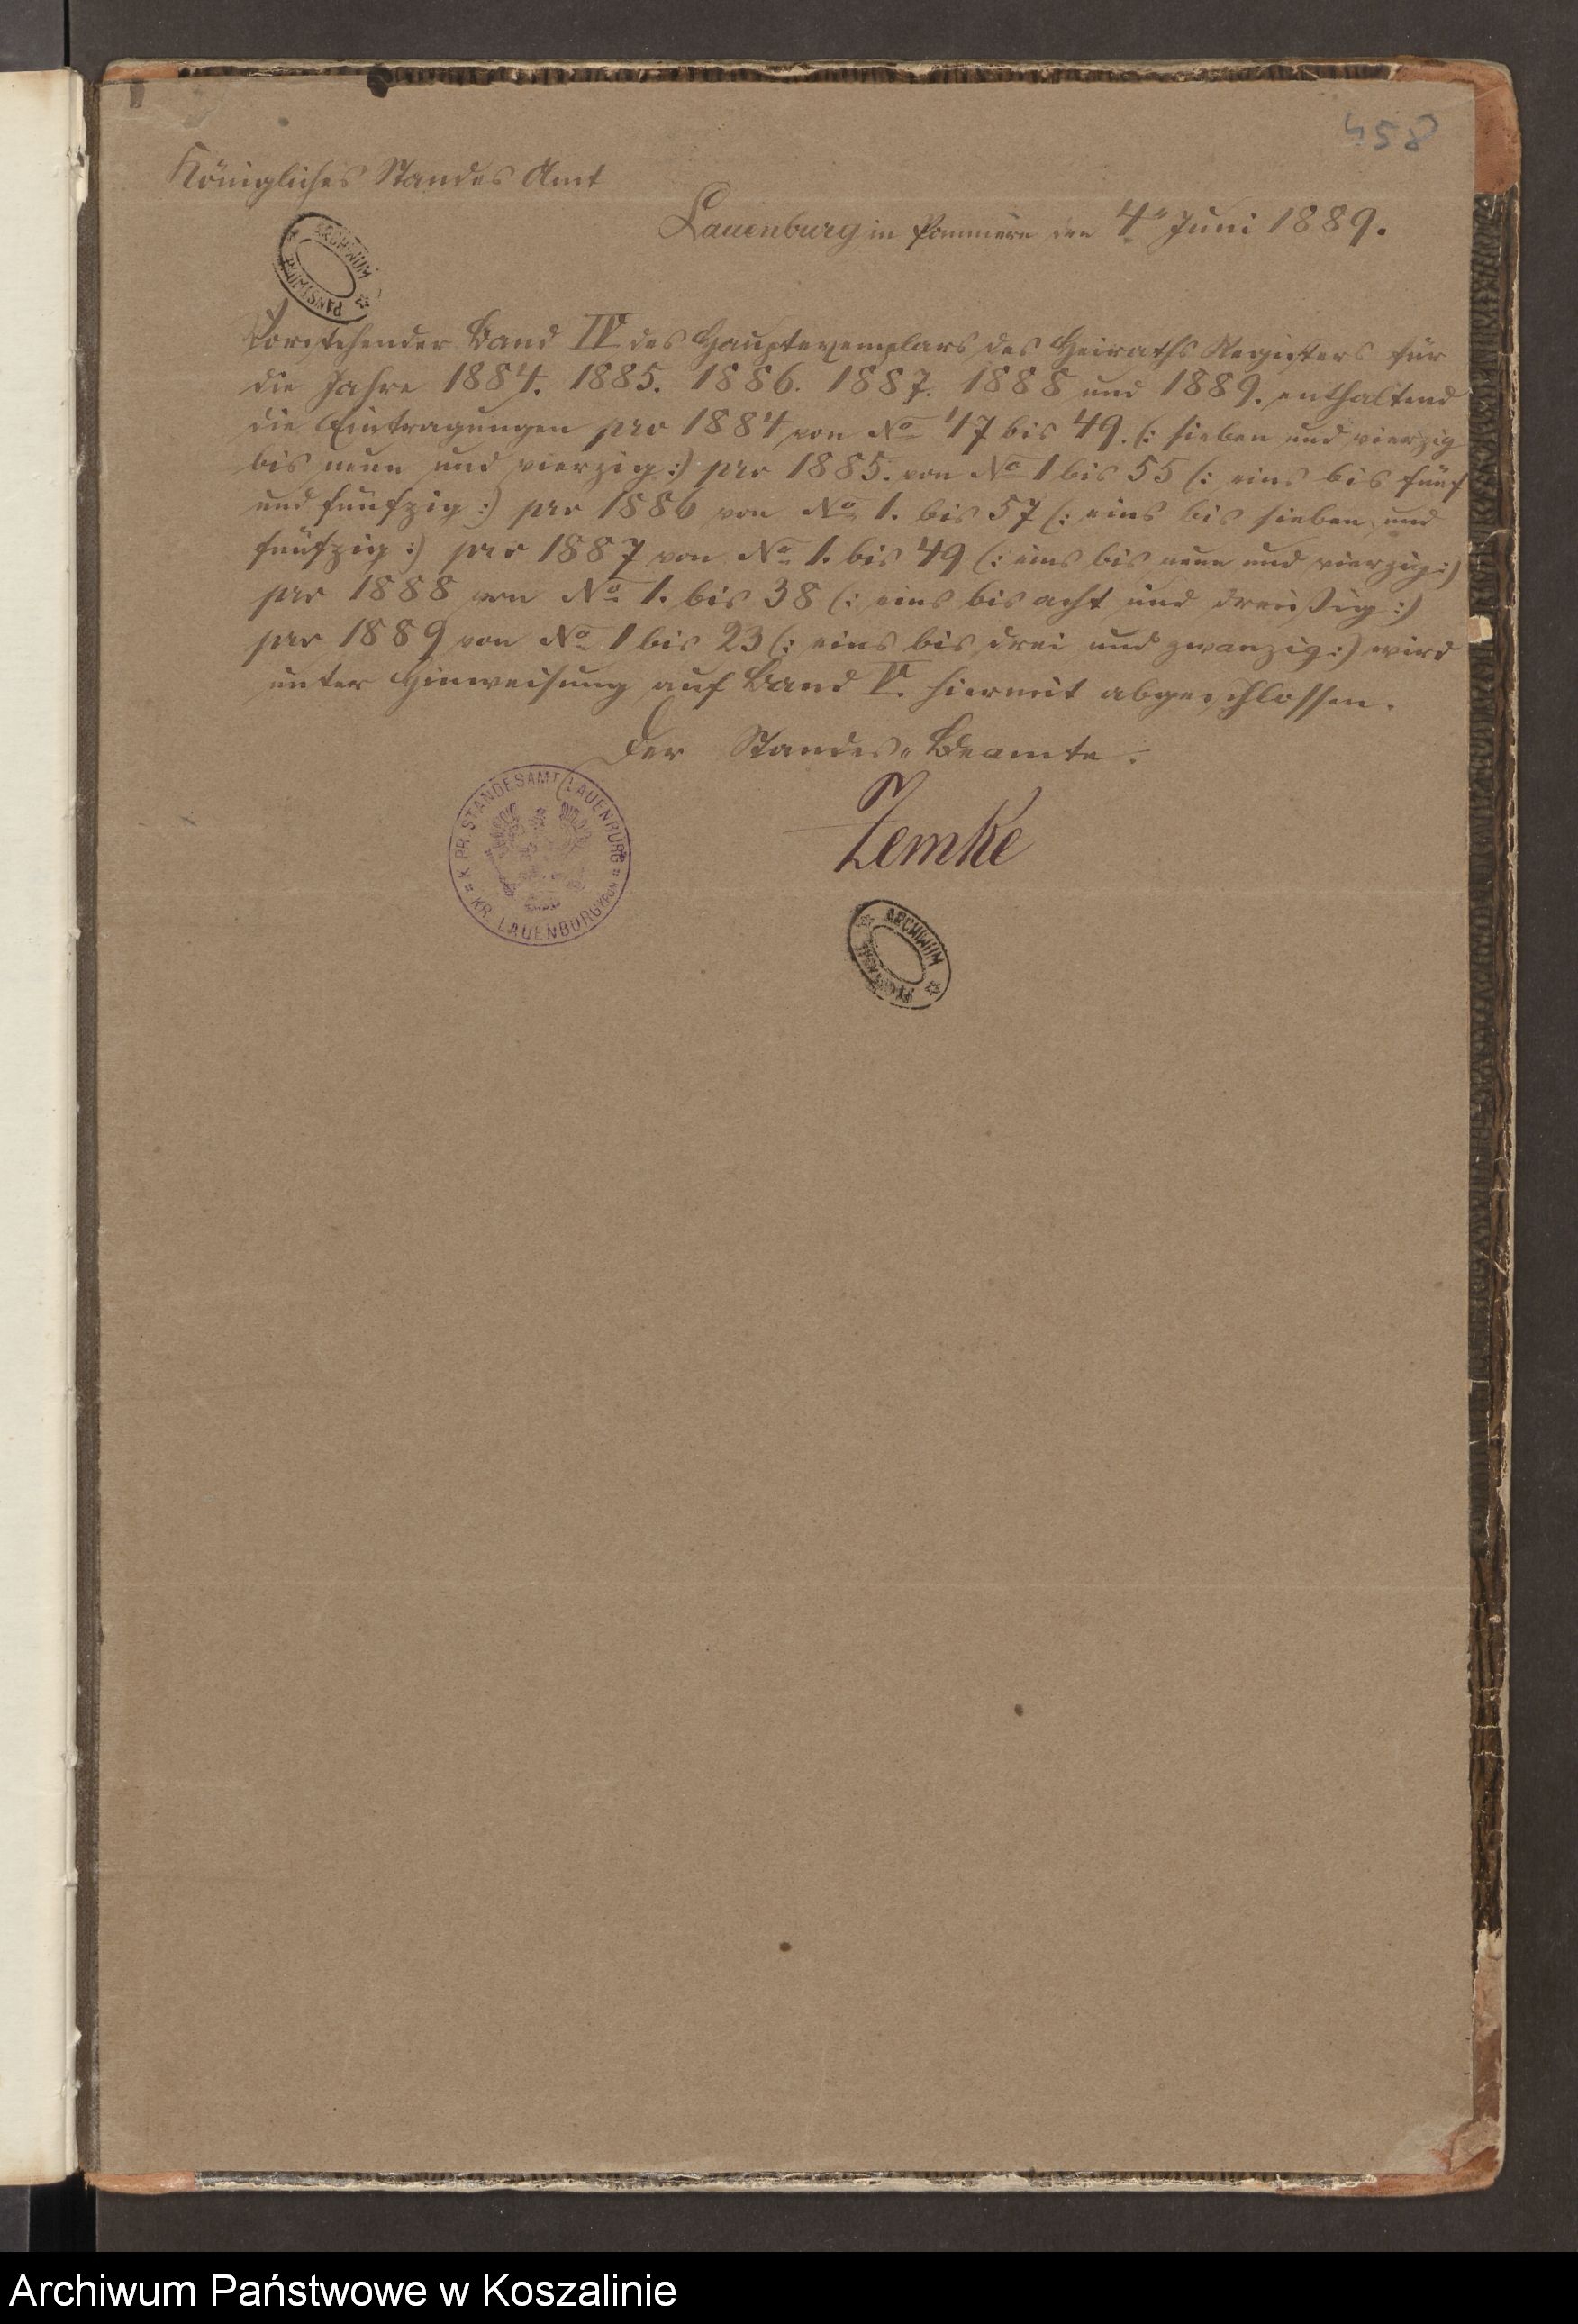 458
Königliches Standes Amt
Lauenburg in Pommern den 4" Juni 1889.
ARCHIWUM PAŃSTWOWE
Vorstehender Band IV des Hauptexemplars des Heiraths Registers für
die Jahre 1884. 1885. 1886. 1887. 1888 und 1889. enthaltend
die Eintragungen pro 1884 von No 47 bis 49. (: sieben und vierzig
bis neun und vierzig :) pro 1885. von No 1 bis 55 (: eins bis fünf
und fünfzig :) pro 1886 von No 1. bis 57 (: eins bis sieben und
fünfzig :) pro 1887 von No 1. bis 49 (: eins bis neun und vierzig :)
pro 1888 von No 1. bis 38 (: eins bis acht und dreißig :)
pro 1889 von No 1 bis 23 (: eins bis drei und zwanzig :) wird
unter Hinweisung auf Band V. hiermit abgeschlossen.
Der Standes-Beamte.
Zemke
K. PR. STANDESAMT LAUENBURG
KR. LAUENBURG
ARCHIWUM PAŃSTWOWE
Archiwum Państwowe w Koszalinie